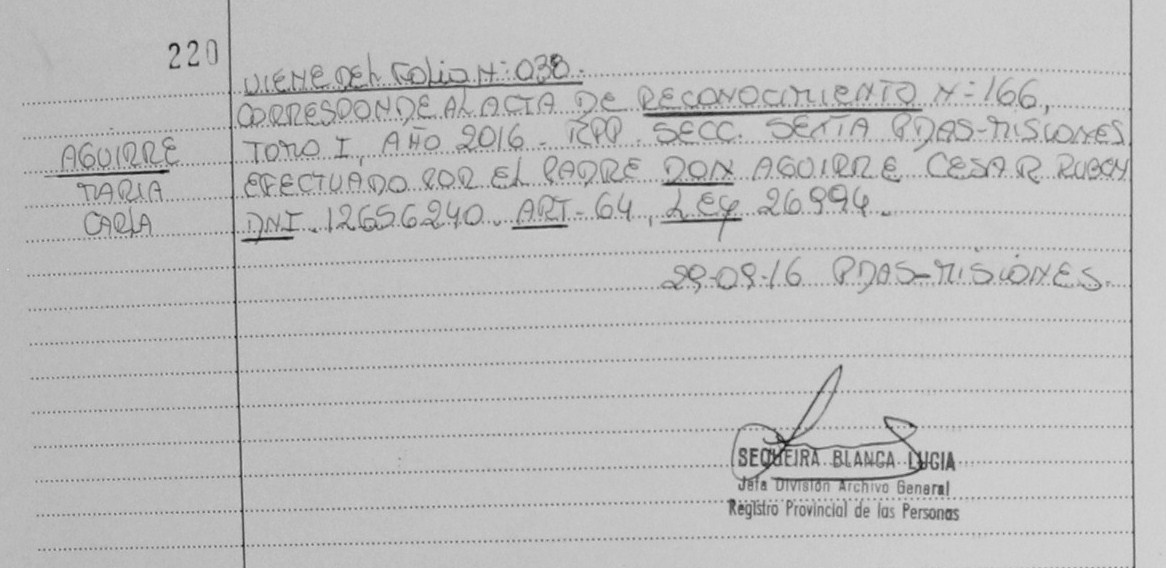 220
VIENE DEL FOLIO N: 038.
CORRESPONDE AL ACTA DE RECONOCIMIENTO N: 166,
AGUIRRE
TOMO I, AÑO 2016. RPP. SECC. SEXTA PDAS-MISIONES
MARIA
EFECTUADO POR EL PADRE DON AGUIRRE CESAR RUBEN
CARLA
DNI. 12656240. ART-64, LEY 26994.
29-09-16 PDAS-MISIONES.
SEQUEIRA BLANCA LUCIA
Jefa División Archivo General
Registro Provincial de las Personas